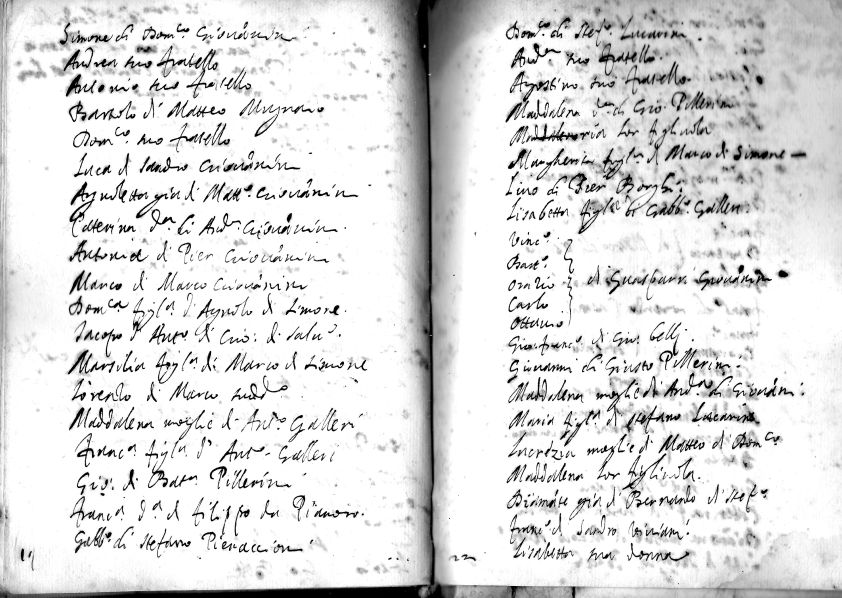 Simone di Dom.co Giovannini
Andrea suo fratello
Antonio suo fratello
Bartolo di Matteo Mugnaio
Dom.co suo fratello
Luca di Sandro Giovannini
Agnoletta già di Matt.o Giovannini
Caterina d.na di And.a Giovannini
Antonia di Pier Giovannini
Marco di Marco Giovannini
Dom.ca figl.a d'Agnolo di Simone
Jacopo d'Ant.o di Gio: di Salv.e
Marsilia figl.a di Marco di Simone
Lorenzo di Marco sudd.o
Maddalena moglie d'And.a Galleri
Franc.a figl.a d'Ant.o Galleri
Gio: di Bat.a Pillerini
Franc.a d.a di Filippo da Pianoro
Gabb.o di Stefano Pieraccioni
19
Dom.co di Stef.o Lucarini
And.a suo fratello
Agostino suo fratello
Maddalena d.na di Gio: Pillerini
Maria lor figliuola
Margherita figl.a di Marco di Simone
Lino di Pier Borghi
Lisabetta figl.a di Gabb.o Galleri
Vinc.o
Bast.o
Orazio di Guasparri Giovannini
Carlo
Ottavio
Gio: Franc.o di Gio: Belli
Giovanni di Giusto Pillerini
Maddalena moglie di And.a di Giovanni
Maria figl.a di Stefano Lucarini
Lucrezia moglie di Matteo di Dom.co
Maddalena lor figliuola
Diamante già di Bernardo di Stef.o
Franc.o di Sandro Viviani
Lisabetta sua donna